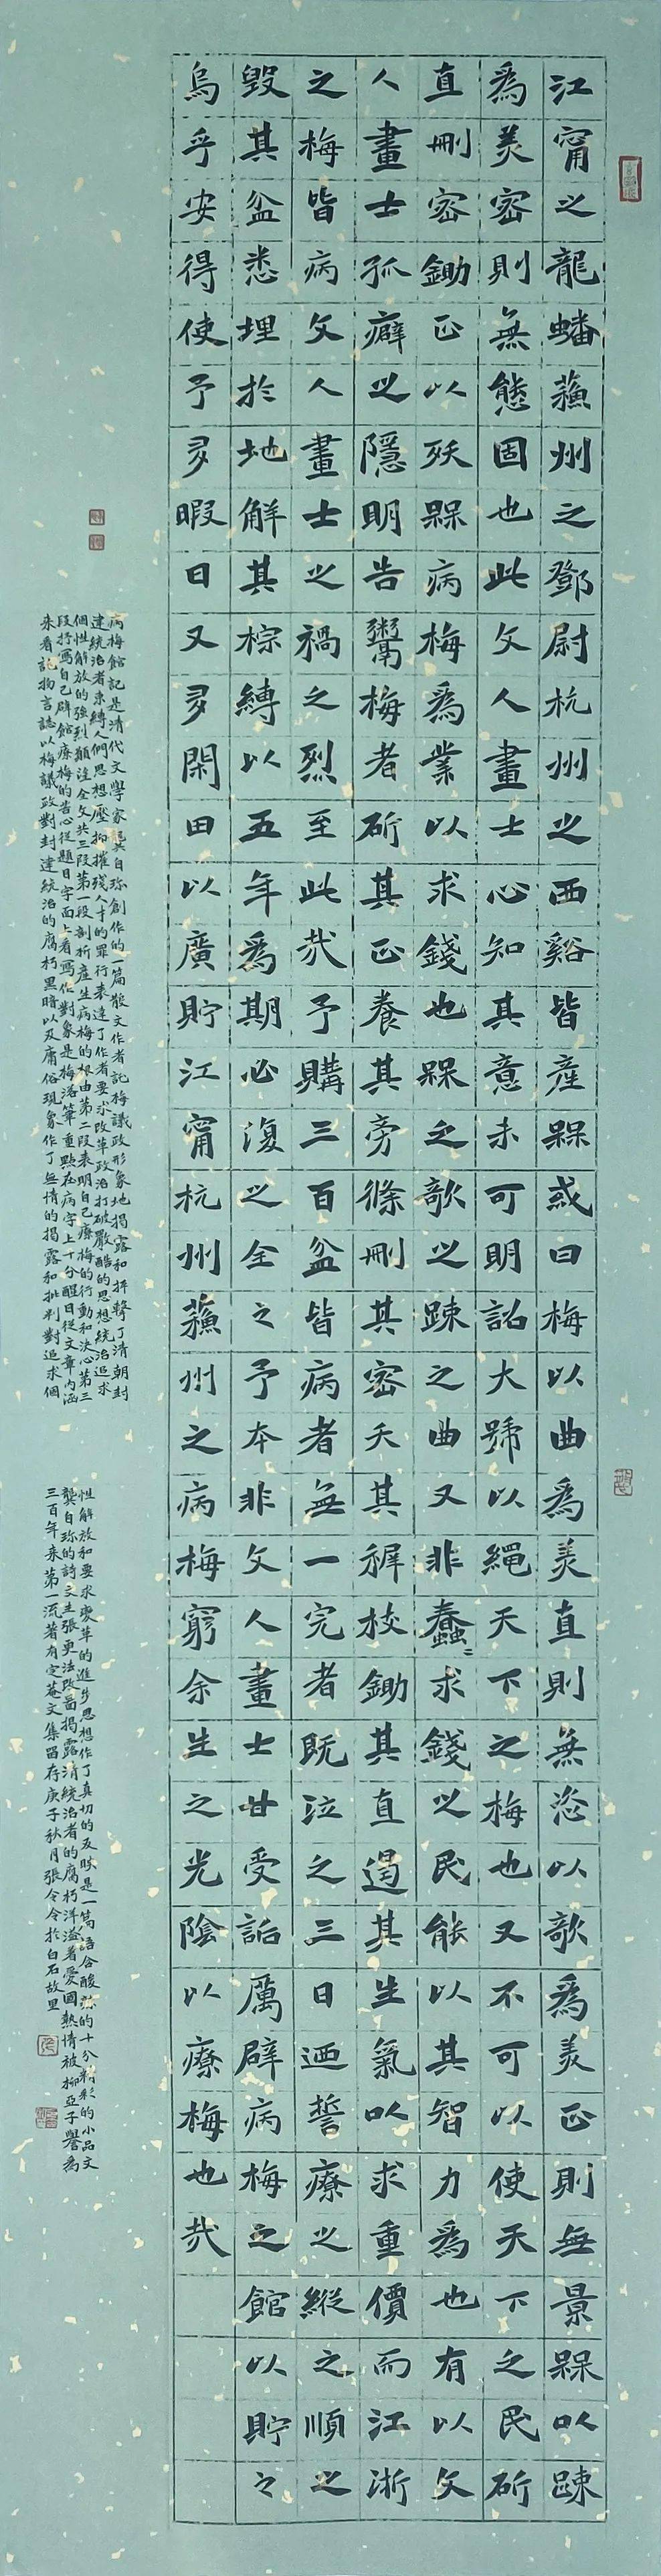 江甯之龍蟠蘓州之鄧尉杭州之西谿皆產槑或曰梅以曲爲美直則無恣以欹爲美正則無景槑以踈
爲美密則無態固也此文人畫士心知其意未可明詔大號以繩天下之梅也又不可以使天下之民斫
直刪密鋤正以殀槑病梅爲業以求錢也槑之欹之踈之曲又非蠢蠢求錢之民能以其智力爲也有以文
人畫士孤癖之隱明告鬻梅者斫其正養其旁條刪其密夭其穉枝鋤其直遏其生氣以求重價而江浙
之梅皆病文人畫士之禍之烈至此㢤予購三百盆皆病者無一完者既泣之三日迺誓療之縱之順之
毀其盆悉埋於地解其棕縛以五年爲期必復之全之予本非文人畫士甘受詬厲辟病梅之館以貯之
烏乎安得使予多暇日又多閑田以廣貯江甯杭州蘓州之病梅窮余生之光陰以療梅也㢤
病梅館記是清代文學家龔自珍創作的一篇散文作者記梅議政形象地揭露和抨擊了清朝封
建統治者束縛人們思想壓抑摧殘人才的罪行表達了作者要求改革政治打破嚴酷的思想統治追求
個性解放的強烈願望全文共三段第一段剖析產生病梅的根由第二段表明自己療梅的行動和決心第三
段抒寫自己辟館療梅的苦心從題目字面上看寫作對象是梅落筆重點在病字上十分醒目從文章內涵
來看記物言誌以梅議政對封建統治的腐朽黑暗以及庸俗現象作了無情的揭露和批判對追求個
性解放和要求變革的進步思想作了真切的反映是一篇語含酸辣的十分精彩的小品文
龔自珍的詩文主張更法改圖揭露清統治者的腐朽洋溢著愛國熱情被柳亞子譽為
三百年來第一流著有定菴文集留存庚子秋月張令令於白石故里